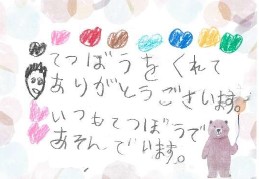 てつぼうをくれて
ありがとうございます。
いつもてつぼうで
あそんでいます。